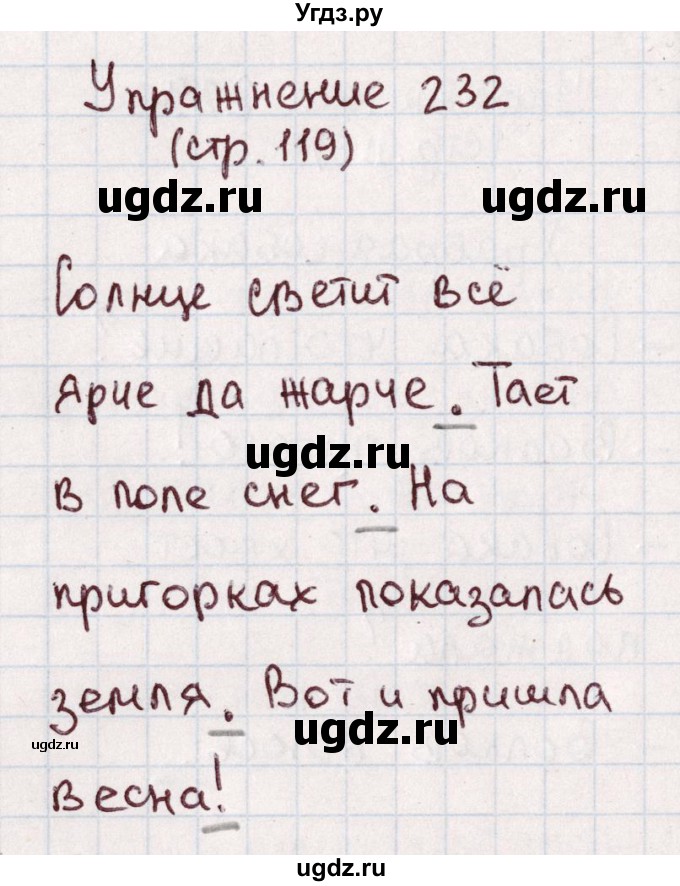 Угдз.ру
Упражнение 232
(стр. 119)
ugdz.ru ugdz.ru
Солнце светит всё
ярче да жарче. Тает
ugdz.ru
в поле снег. На
пригорках показалась
земля. Вот и пришла
ugdz.ru ugdz.ru
весна!
ugdz.ru